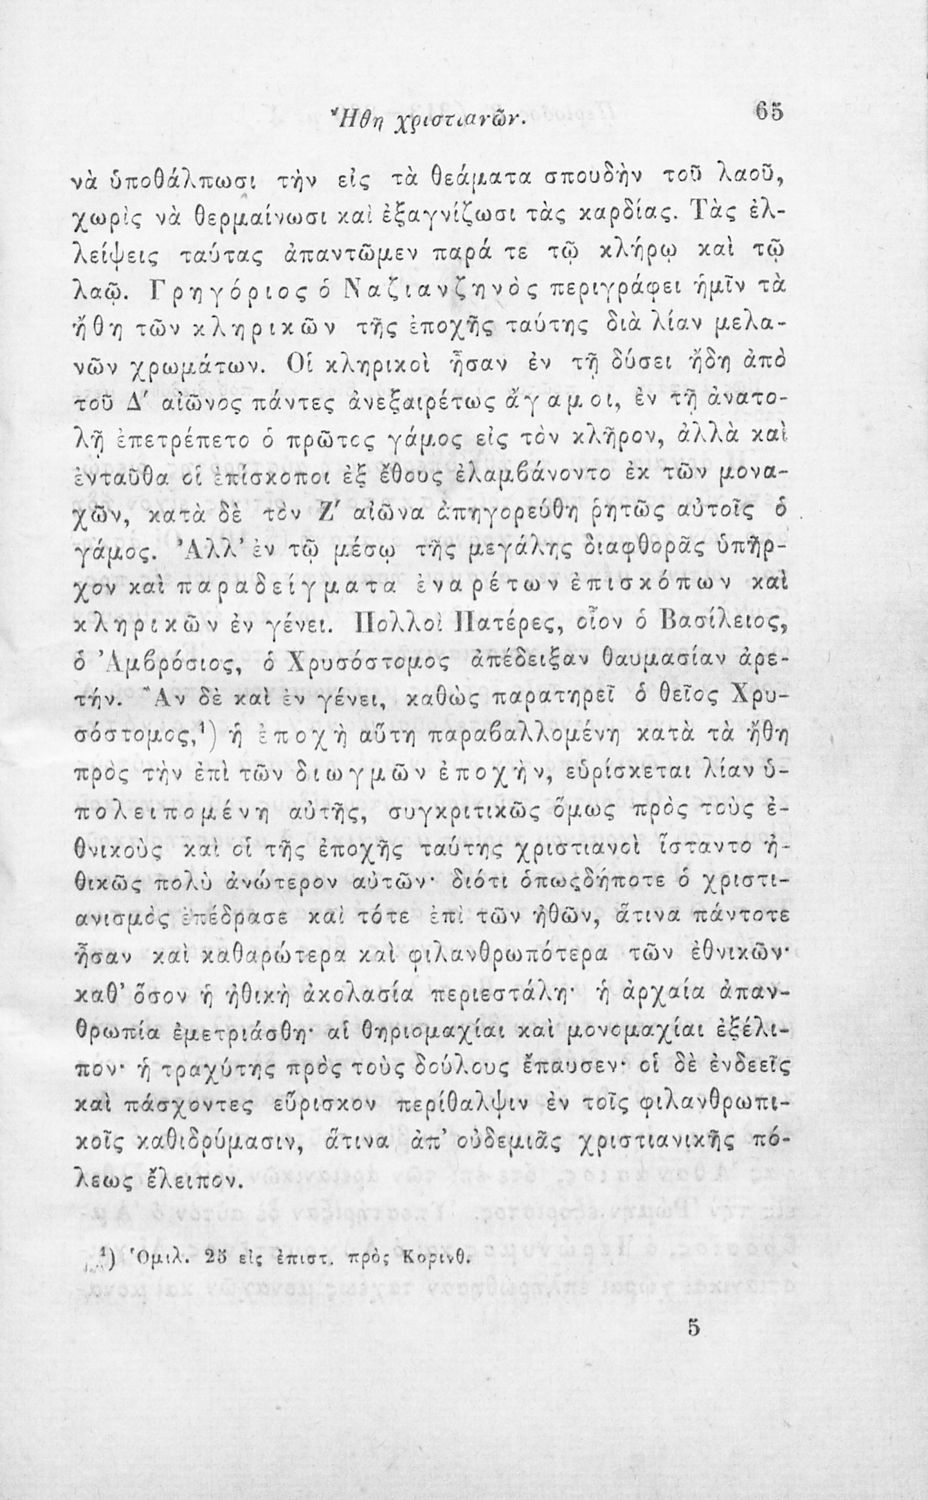 Ἤθη χριστιανῶν. 65
νὰ ὑποθάλπωσι τὴν εἰς τὰ θεάματα σπουδὴν τοῦ λαοῦ,
χωρὶς νὰ θερμαίνωσι καὶ ἐξαγνίζωσι τὰς καρδίας. Τὰς ἐλ-
λείψεις ταύτας ἀπαντῶμεν παρά τε τῷ κλήρῳ καὶ τῷ
λαῷ. Γρηγόριος ὁ Ναζιανζηνὸς περιγράφει ἡμῖν τὰ
ἤθη τῶν κληρικῶν τῆς ἐποχῆς ταύτης διὰ λίαν μελα-
νῶν χρωμάτων. Οἱ κληρικοὶ ἦσαν ἐν τῇ δύσει ἤδη ἀπὸ
τοῦ Δ' αἰῶνος πάντες ἀνεξαιρέτως ἄγαμοι, ἐν τῇ ἀνατο-
λῇ ἐπετρέπετο ὁ πρῶτος γάμος εἰς τὸν κλῆρον, ἀλλὰ καὶ
ἐνταῦθα οἱ ἐπίσκοποι ἐξ ἔθους ἐλαμβάνοντο ἐκ τῶν μονα-
χῶν, κατὰ δὲ τὸν Ζ' αἰῶνα ἀπηγορεύθη ῥητῶς αὐτοῖς ὁ
γάμος. Ἀλλ' ἐν τῷ μέσῳ τῆς μεγάλης διαφθορᾶς ὑπῆρ-
χον καὶ παραδείγματα ἐναρέτων ἐπισκόπων καὶ
κληρικῶν ἐν γένει. Πολλοὶ Πατέρες, οἷον ὁ Βασίλειος,
ὁ Ἀμβρόσιος, ὁ Χρυσόστομος ἀπέδειξαν θαυμασίαν ἀρε-
τήν. Ἂν δὲ καὶ ἐν γένει, καθὼς παρατηρεῖ ὁ θεῖος Χρυ-
σόστομος,¹) ἡ ἐποχὴ αὕτη παραβαλλομένη κατὰ τὰ ἤθη
πρὸς τὴν ἐπὶ τῶν διωγμῶν ἐποχὴν, εὑρίσκεται λίαν ὑ-
πολειπομένη αὐτῆς, συγκριτικῶς ὅμως πρὸς τοὺς ἐ-
θνικοὺς καὶ οἱ τῆς ἐποχῆς ταύτης χριστιανοὶ ἵσταντο ἠ-
θικῶς πολὺ ἀνώτερον αὐτῶν· διότι ὁπωςδήποτε ὁ χριστι-
ανισμὸς ἐπέδρασε καὶ τότε ἐπὶ τῶν ἠθῶν, ἅτινα πάντοτε
ἦσαν καὶ καθαρώτερα καὶ φιλανθρωπότερα τῶν ἐθνικῶν·
καθ' ὅσον ἡ ἠθικὴ ἀκολασία περιεστάλη· ἡ ἀρχαία ἀπαν-
θρωπία ἐμετριάσθη· αἱ θηριομαχίαι καὶ μονομαχίαι ἐξέλι-
πον· ἡ τραχύτης πρὸς τοὺς δούλους ἔπαυσεν· οἱ δὲ ἐνδεεῖς
καὶ πάσχοντες εὕρισκον περίθαλψιν ἐν τοῖς φιλανθρωπι-
κοῖς καθιδρύμασιν, ἅτινα ἀπ' οὐδεμιᾶς χριστιανικῆς πό-
λεως ἔλειπον.
¹) Ὁμιλ. 25 εἰς ἐπιστ. πρὸς Κορινθ.
5